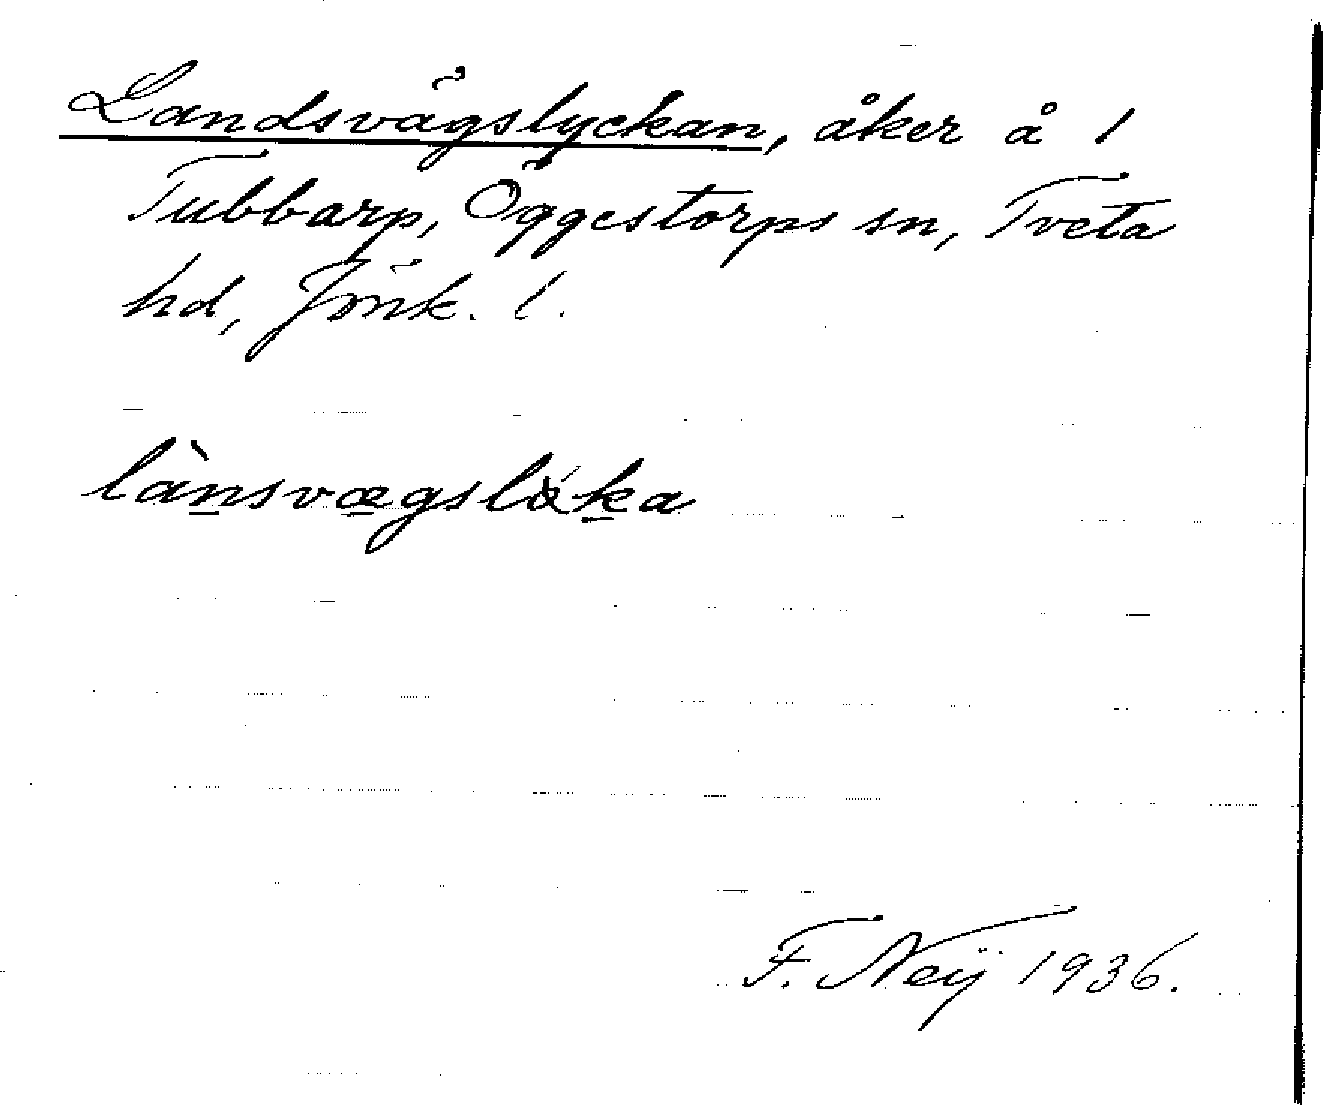 Landsvägslyckan, åker å 1
Tubbarp, Öggestorps sn, Tveta
hd, Jönk. l.
lànsvægslöka
F. Neij 1936.